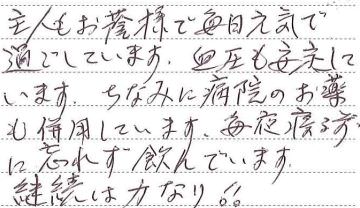 主人もお蔭様で毎日元気で
過ごしています. 血圧も安定して
います. ちなみに病院のお薬
も併用しています. 毎夜寝る前
に忘れず飲んでいます.
継続は力なり!!